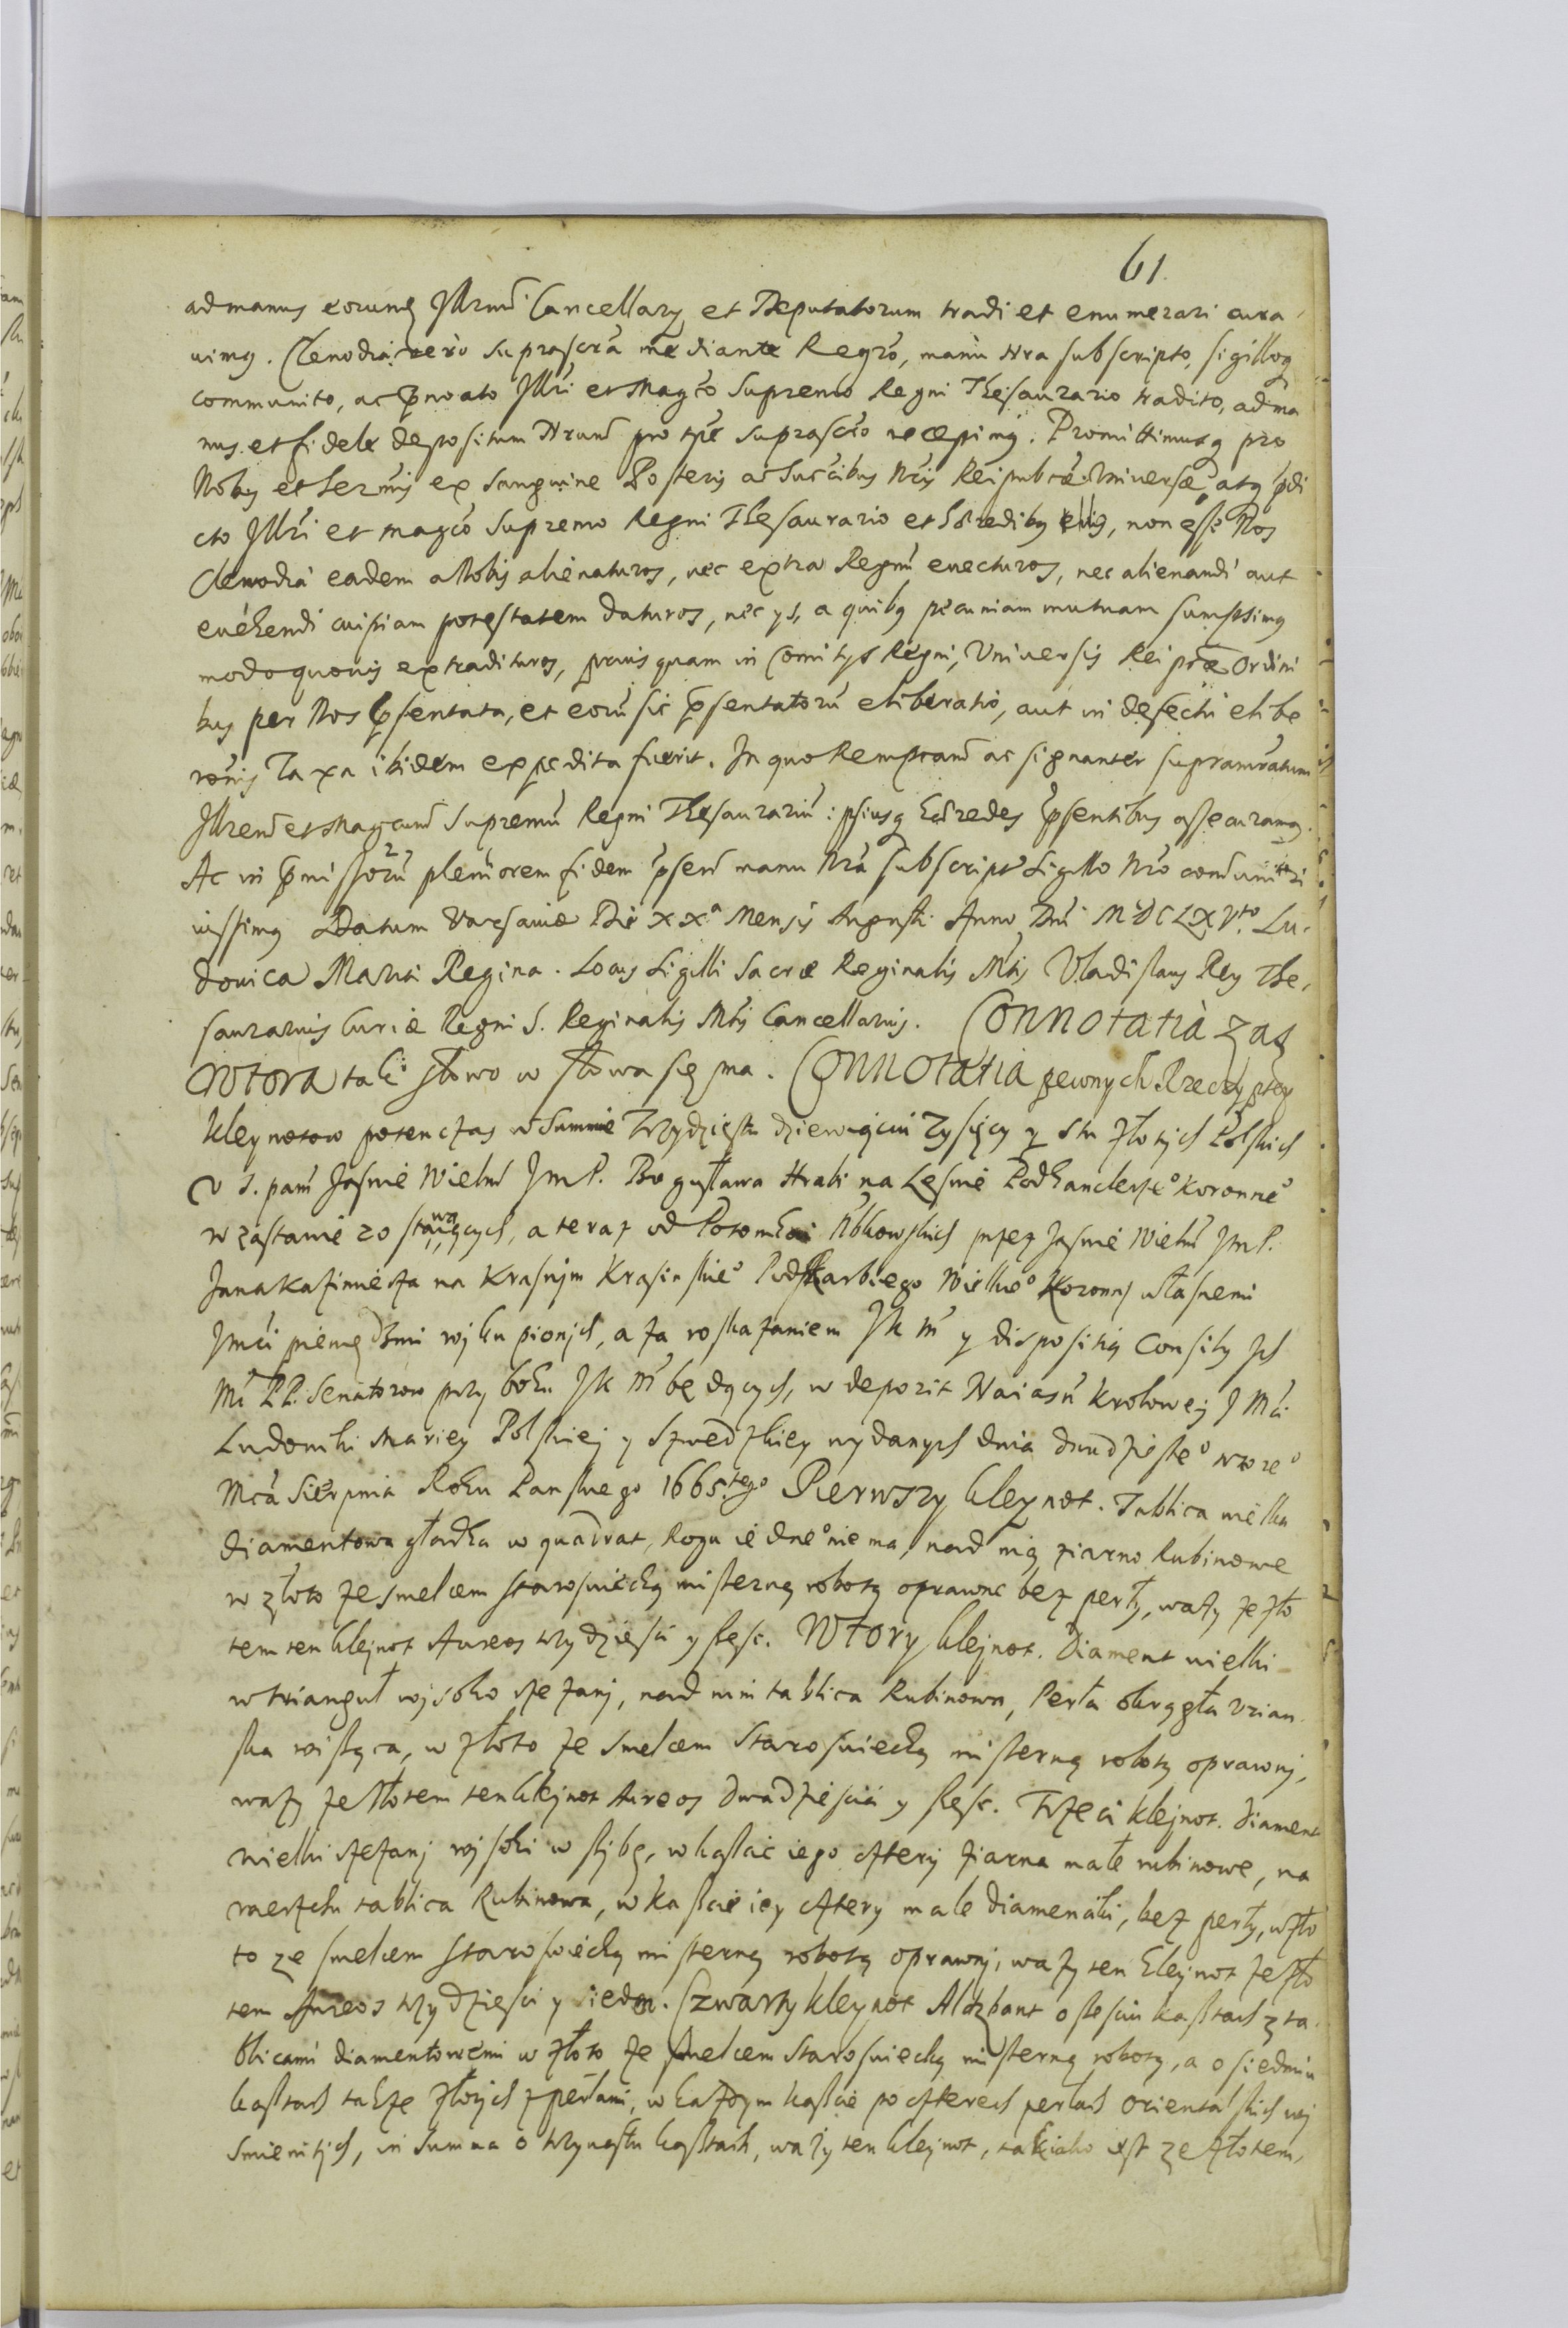 61.
ad manus eorund Illrmi Cancellarij et Deputatorum tradi et enumerari cura
uimg. Clenodia vero suprascrā mediante Regr̄o, manu Nra subscripto, sigilloq
communito, ac Illri et Magco Supremo Regni Thesaurario tradito, ad ma
nus et fidele depositum Nrum pro tpre suprascto recepimg. Promittimusq pro
Nobis et Sermis ex Sanguine Posteris ac Succibus Nris Reipubcae Universae, atq pdi
cto Illri et magco Supremo Regni Thesaurario et Haeredibg eius, non esse Nos
Clenodia eadem a Nobis alienaturos, nec extra Regnū evecturos, nec alienandi aut
evehendi cuipiam potestatem daturos, nec ys, a quibg pecuniam mutuam sumpsimg
modo quovis extradituros, prius quam in Comitys Regni, Universis Rei pcae Ordini
bus per Nos psentata, et eorū sic psentatorū eliberatio, aut in defectu elibe
rōnis Taxa ibidem expedita fuerit. In quo Rempcam ac signanter supranratum
Illrem et Magcum Supremū Regni Thesaurariū ipsiusq Haeredes psentibus assecuramg.
Ac in pmissorū pleniorem fidem psens manu Nra subscript Sigillo Nro comuniri
iussimg Datum Varsaviae Die XXa Mensis Augusti Anno Dni MDCLXVto. Lu-
dovica Maria Regina. Locus Sigilli Sacrae Reginalis Mtis Vladislaus Rey The-
saurarius Curiae Regni S. Reginalis Mtis Cancellarius. Connotatia zas
Wtora tak słowo w słowa się ma. Connotatia pewnych Rzeczyptey
kleynotow potenczas w Summie Trzydziestu dziewiąciu Tysięcy y stu złotych Polskich
v s. pam Jasnie Wielm JmP. Bogusława Hrabi na Lesnie Podkanclerze° koronne°
w zastawie zostawaiących, a teraz od Potomkow przez Jasnie Wielm JmP.
Jana Kazimierza na Krasnym Krasinskie° Podskarbiego Wielkie° Koronnj własnemi
Jmci pieniędzmi wykupionych, a za roskazaniem JKM y dispositią Consily Ich
Mć PP. Senatorow przy boku JKM będących, w depozit Naiasń Krolowej JMći
Ludowiki Mariey Polskiej y Szwedzkiey wydanych dnia dwudzieste° wtore°
Mcā Sierpnia Roku Panskiego 1665.tego Pierwszy kleynot. Tablica wielka
diamentowa gładka w quadrat, Rogu iedne° nie ma, nad nią ziarno Rubinowe
w złoto ze smelcem staroswiecką misterną robotą oprawne bez perły, waży ze zło
tem ten klejnot Aureos trzydziesci y szesc. Wtory klejnot. Diament wielki
w trianguł wysoko rzezanj, nad nim tablica Rubinowa, Perła okrągła Urian
ska wisząca, w złoto ze smelcem staroswiecką misterną robotą oprawnj,
waży ze złotem ten klejnot Aureos dwadziescia y szesc. Trzeci klejnot. Diament
wielki rzezanj wysoki w szybę, w kaszcie iego cztery ziarna małe rubinowe, na
wierzchu tablica Rubinowa, w kaszcie iey cztery małe diamenciki, bez perły, w zło
to ze smelcem staroswiecką misterną robotą oprawnj, waży ten kleynot ze zło
tem Aureos trzydziesci y siedm. Czwarty kleynot Alczbant o szesciu kasztach z ta-
blicami diamentowemi w złoto ze smelcem staroswiecką misterną robotą, a o siedmiu
kasztach także złotych z perłami, w każdym kaszcie po czterech perłach orientalskich wy
smienitych, in Summa o trzynastu kasztach, waży ten klejnot, tak iako iest ze złotem,